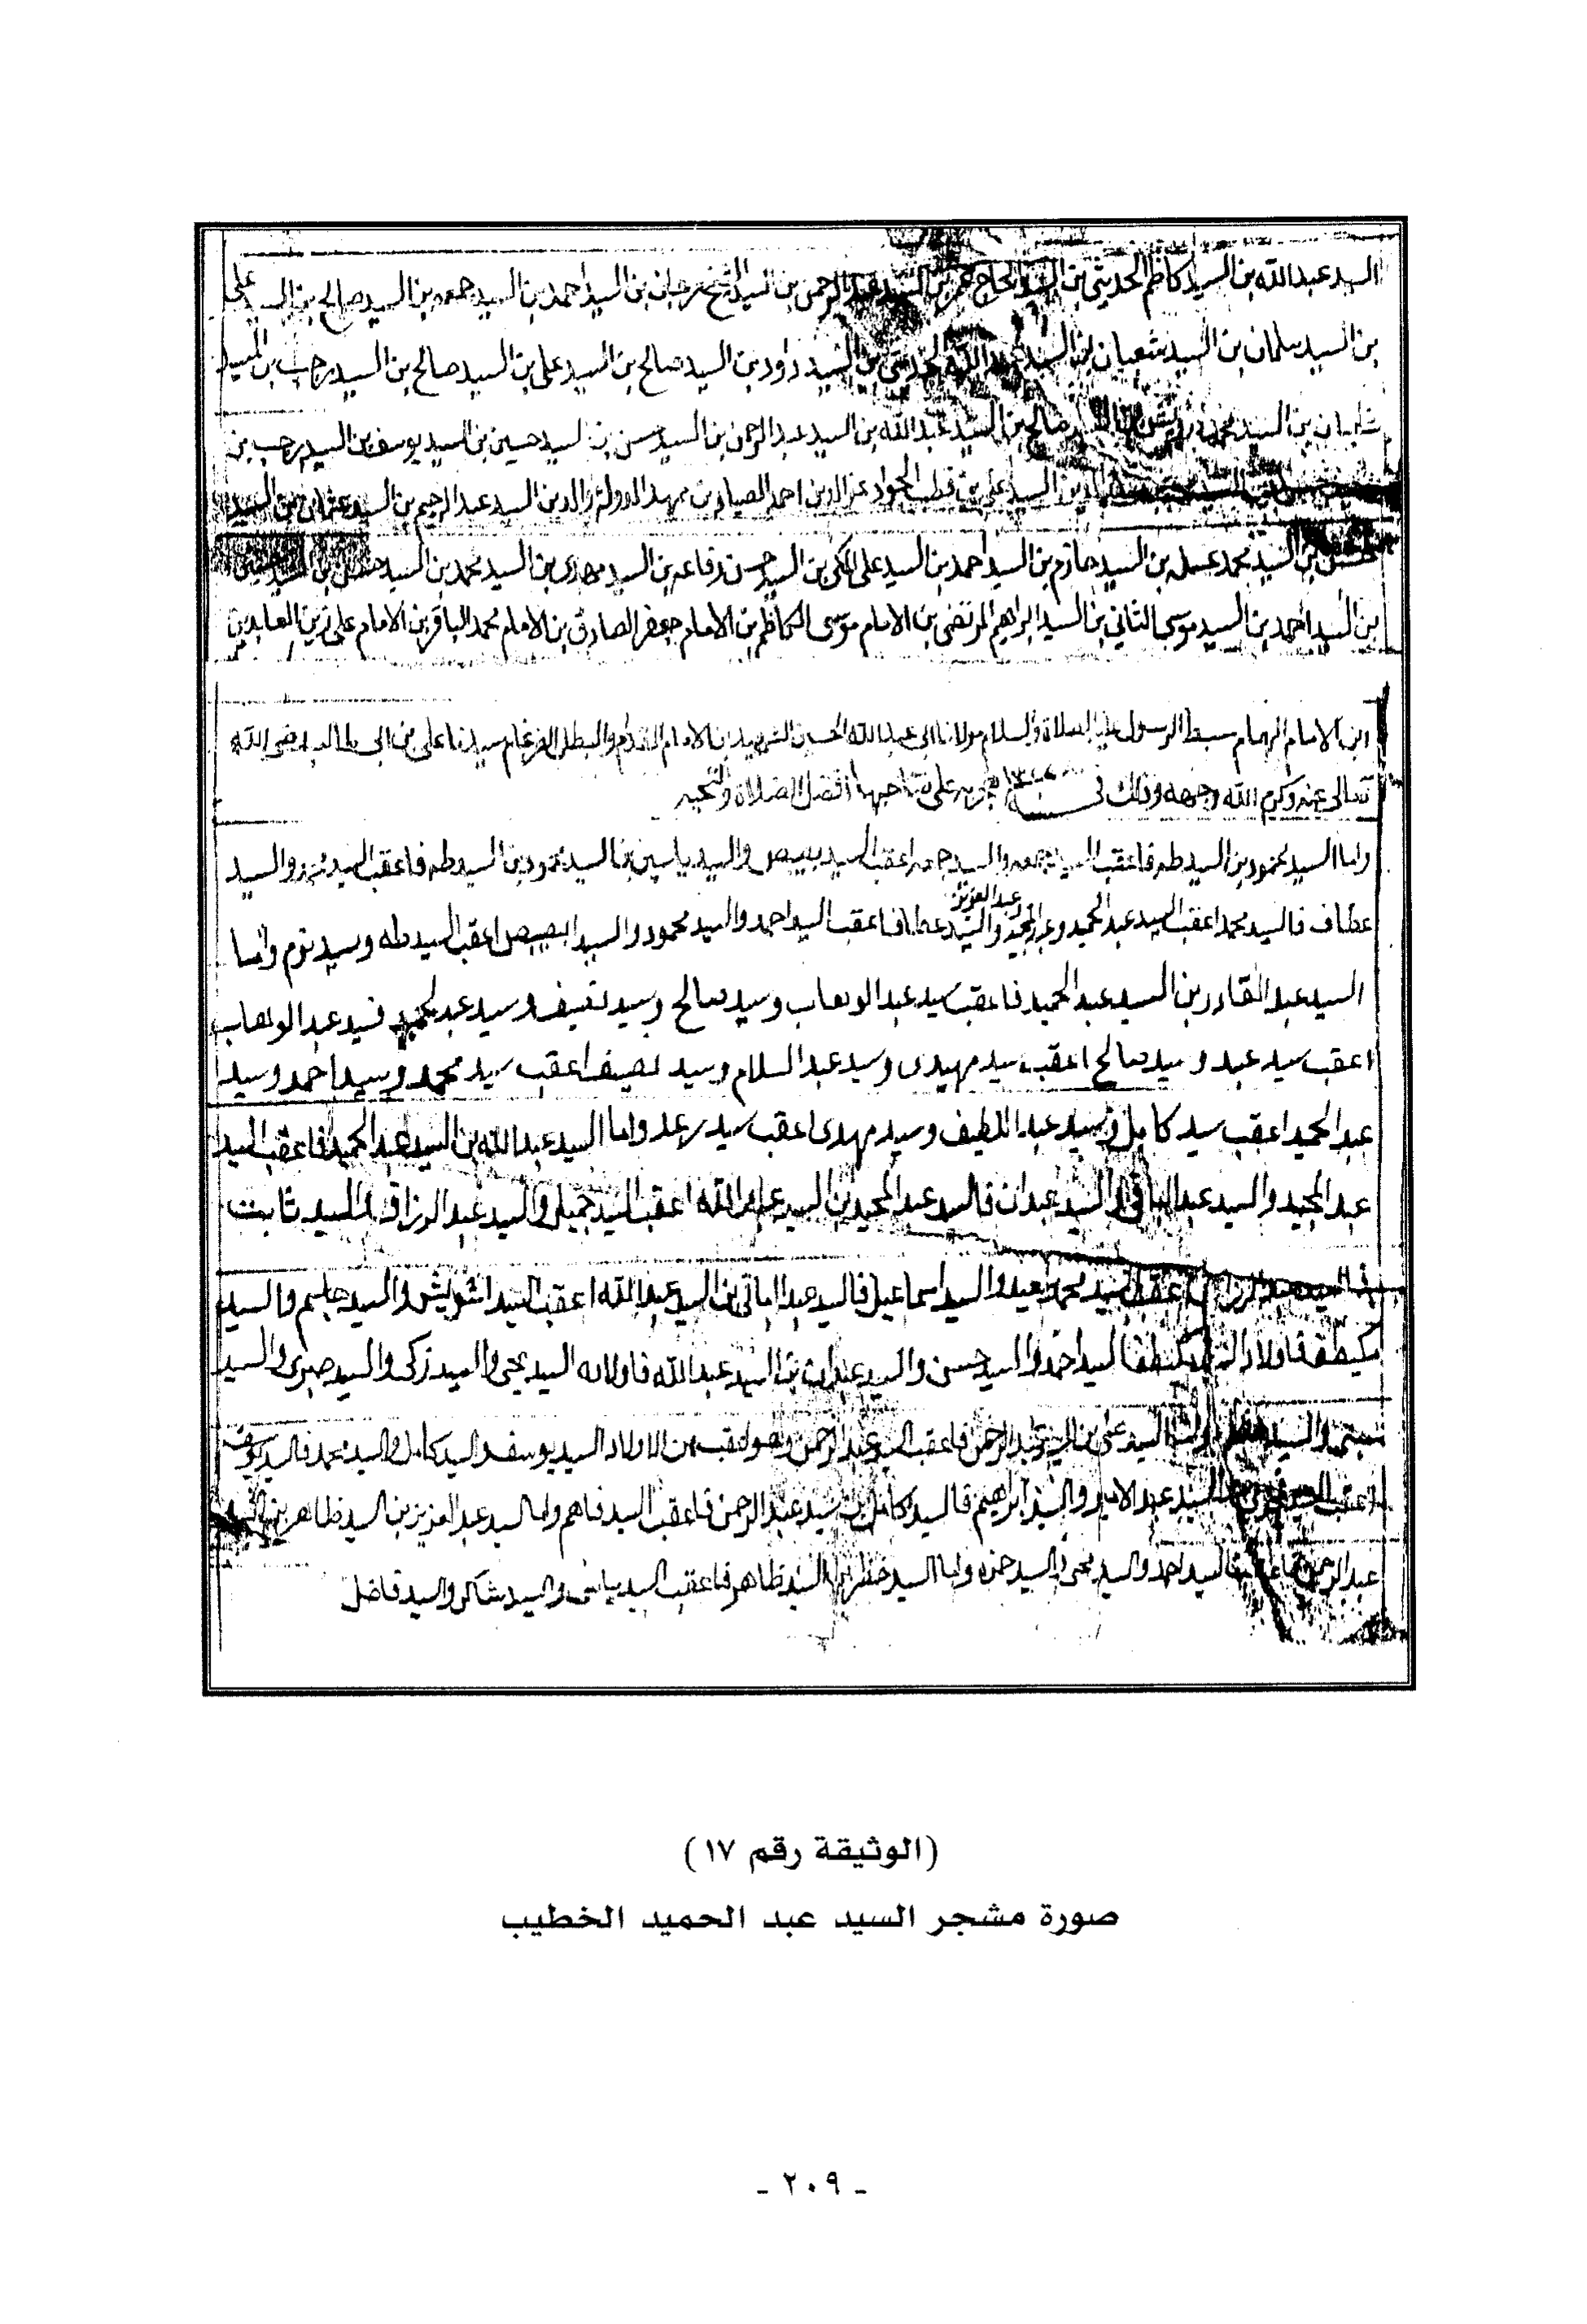 السيد عبدالله بن السيد كاظم الحديثي بن السيد الحاج بن السيد عبد الرحمن بن السيد الشيخ رجب بن السيد احمد بن السيد جمعه بن السيد صالح بن السيد علي
بن السيد سلمان بن السيد شعبان بن السيد عبد الله الحديثي بن السيد داود بن السيد صالح بن السيد علي بن السيد صالح بن السيد رجب بن السيد
بن السيد محمد صالح بن السيد عبدالله بن السيد عبد الرحمن بن السيد حسن بن السيد حسين بن السيد يوسف بن السيد رجب بن
الدين السيد علي بن قطب الجواد عز الدين احمد الصياد بن ممهد الدولة والدين السيد عبد الرحيم بن السيد عثمان بن السيد
حسن بن السيد محمد عسله بن السيد حازم بن السيد احمد بن السيد علي المكي بن السيد حسن رفاعه بن السيد مهدي بن السيد محمد بن السيد حسن بن السيد حسين
بن السيد احمد بن السيد موسى الثاني بن السيد ابراهيم المرتضى بن الامام موسى الكاظم بن الامام جعفر الصادق بن الامام محمد الباقر بن الامام علي زين العابدين
ابن الامام الهمام سبط الرسول عليه الصلاة والسلام مولانا ابي عبد الله الحسين الشهيد بن الامام المقدام والبطل الضرغام سيدنا علي بن ابي طالب رضي الله
تعالى عنه وكرم الله وجهه وذلك في سنة هجريه على صاحبها افضل الصلاة والتحيه
واما السيد محمود بن السيد طه فاعقب السيد جمعه والسيد جمعه اعقب السيد بصيص والسيد ياسين بن السيد محمود بن السيد طه فاعقب السيد محمد والسيد
عطاف فالسيد محمد اعقب السيد عبد الحميد وعبد المجيد وعبد العزيز والسيد عطاف اعقب السيد احمد والسيد محمود والسيد بصيص اعقب السيد طه وسيد نوم واما
السيد عبد القادر بن السيد عبد الحميد فاعقب سيد عبد الوهاب وسيد صالح وسيد نصيف وسيد عبد الحميد فسيد عبد الوهاب
اعقب سيد عبد وسيد صالح اعقب سيد مهيدي وسيد عبد السلام وسيد نصيف اعقب سيد محمد وسيد احمد وسيد
عبد الحميد اعقب سيد كامل وسيد عبد اللطيف وسيد مهدي اعقب سيد رعد واما السيد عبد الله بن السيد عبد الحميد فاعقب السيد
عبد المجيد والسيد عبد الباقي والسيد عبدان فالسيد عبد المجيد بن السيد عبد الله اعقب السيد جميل والسيد عبد الرزاق والسيد ثابت
فالسيد عبد الرزاق اعقب السيد محمد سعيد والسيد اسماعيل فالسيد عبد الباقي بن السيد عبد الله اعقب السيد اشويش والسيد جاسم والسيد
فاولاد السيد السيد احمد والسيد حسن والسيد عبدان بن السيد عبد الله فاولاده السيد يحيى والسيد زكي والسيد صبري والسيد
والسيد السيد علي بن السيد عبد الرحمن فاعقب السيد عبد الرحمن وهو اعقب من الاولاد السيد يوسف والسيد كامل والسيد محمد فالسيد يوسف
اعقب السيد السيد عبد الامير والسيد ابراهيم فالسيد كامل بن سيد عبد الرحمن فاعقب السيد فاهم واما السيد عبد العزيز بن السيد ظاهر بن السيد
عبد الرحمن السيد احمد والسيد يحيى والسيد حمزه واما السيد خضر بن السيد ظاهر فاعقب السيد ياس والسيد شاكر والسيد فاضل
(الوثيقة رقم ١٧)
صورة مشجر السيد عبد الحميد الخطيب
- ٢٠٩ -